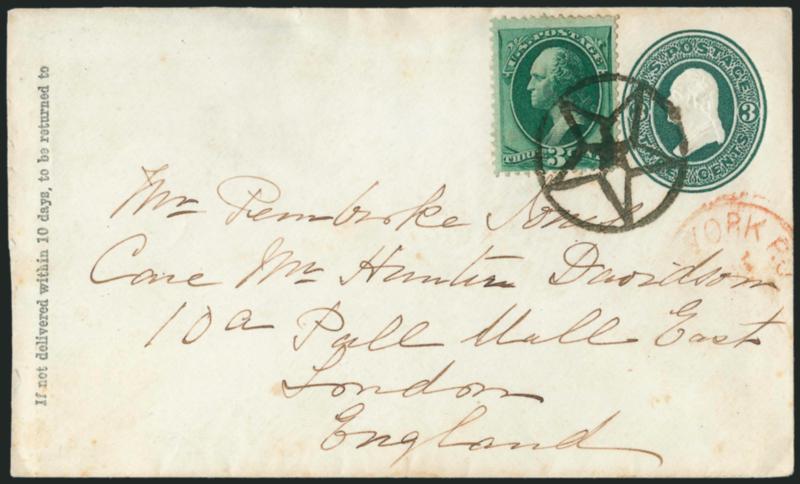 If not delivered within 10 days, to be returned to
U.S. POSTAGE
THREE 3
U.S. POSTAGE
3 3
CENTS
YORK
Mr Pembroke Jones
Care Mr Hunter Davidson
10a Pall Mall East
London
England